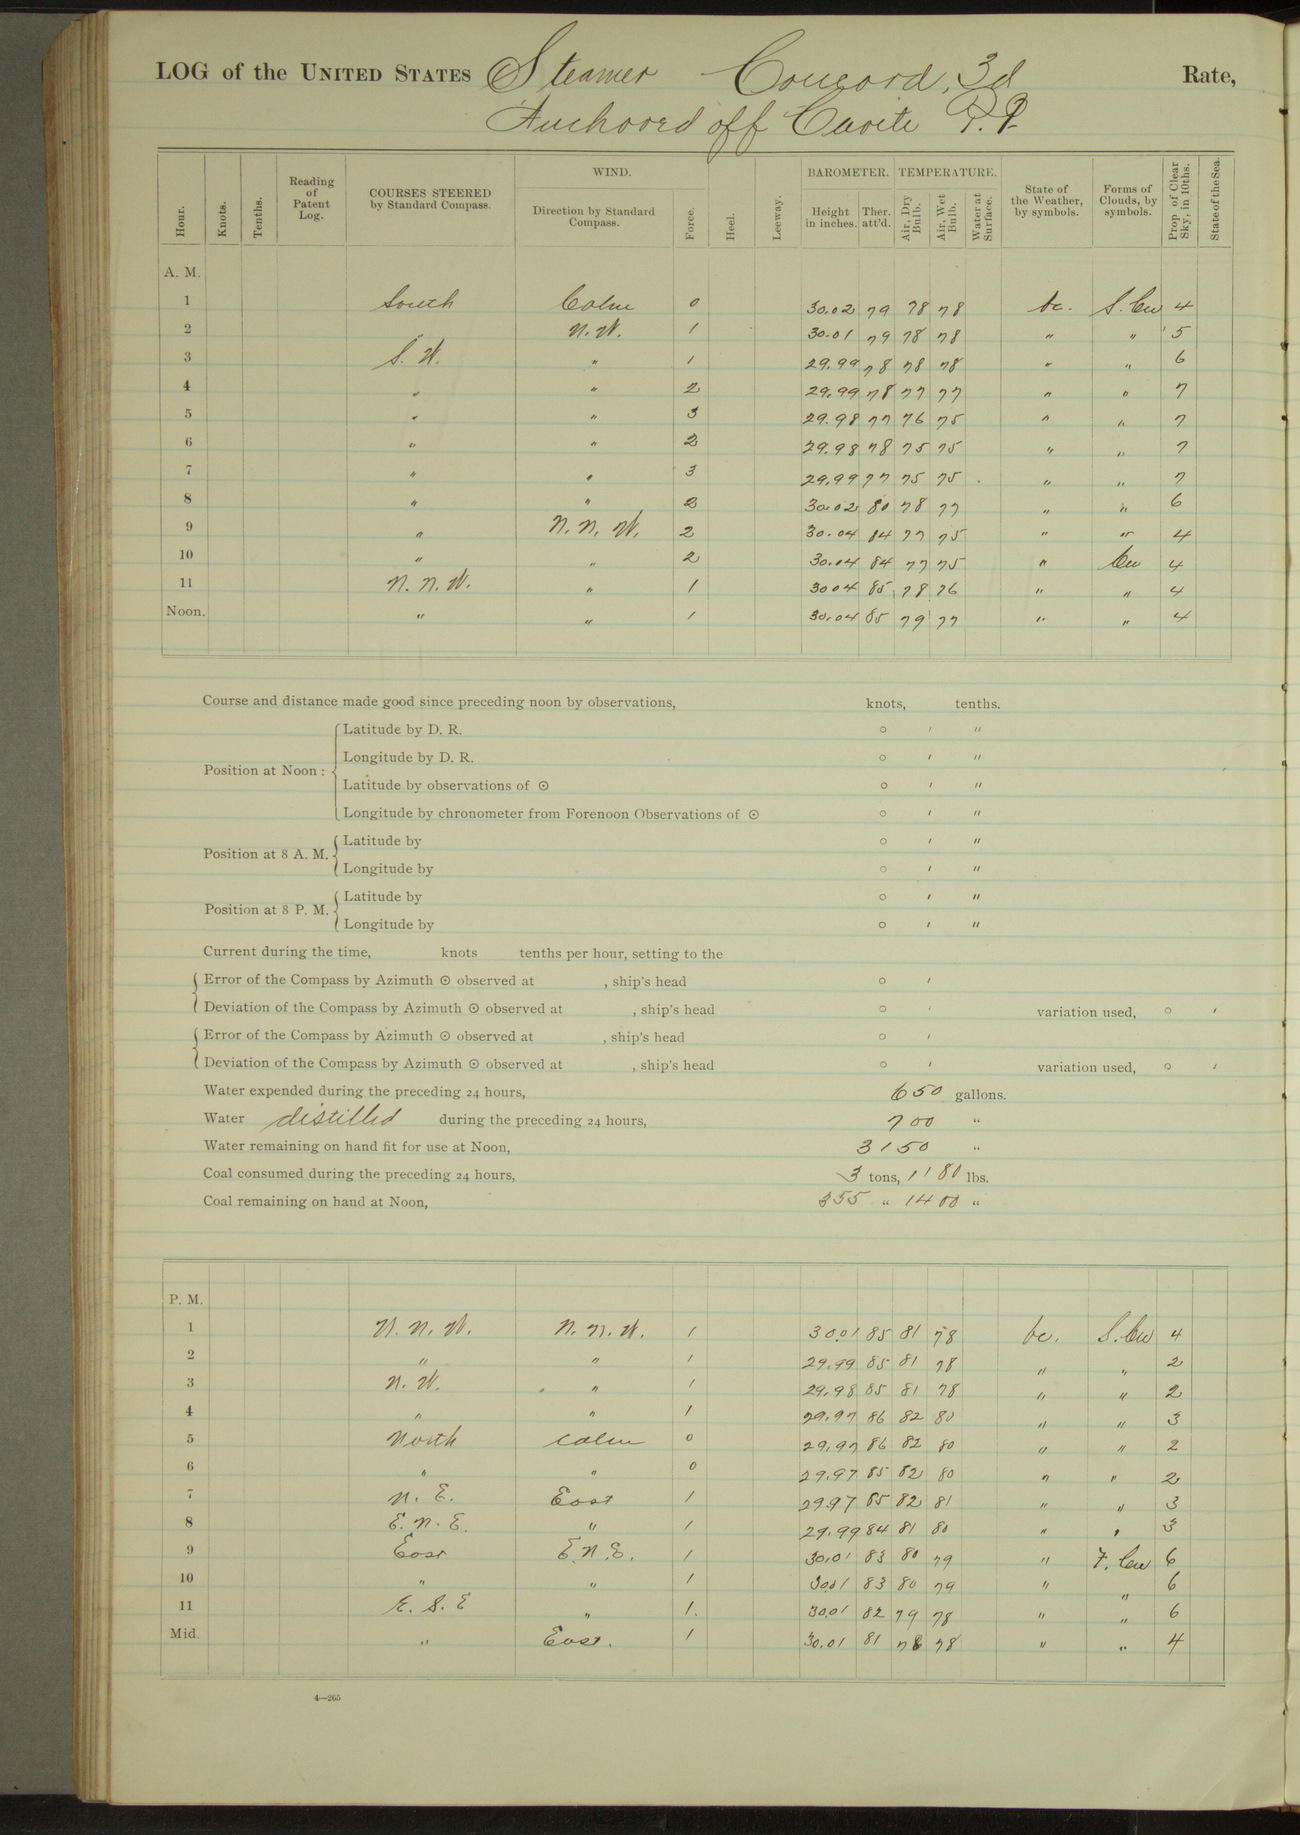 LOG of the UNITED STATES Steamer Concord, 3d Rate,
Anchored off Cavite P.I.
Hour. Knots. Tenths. Reading of Patent Log. COURSES STEERED by Standard Compass. WIND. Direction by Standard Compass. Force. Heel. Leeway. BAROMETER. Height in inches. Ther. att'd. TEMPERATURE. Air, Dry Bulb. Air, Wet Bulb. Water at Surface. State of the Weather, by symbols. Forms of Clouds, by symbols. Prop. of Clear Sky, in 10ths. State of the Sea.
A. M.
1 South Calm 0 30.02 79 78 78 bc. S. Cu 4
2 " N.W. 1 30.01 79 78 78 " " 5
3 S. W. " 1 29.99 78 78 78 " " 6
4 " " 2 29.99 78 77 77 " " 7
5 " " 3 29.98 77 76 75 " " 7
6 " " 2 29.98 78 75 75 " " 7
7 " " 3 29.99 77 75 75 " " 7
8 " " 2 30.02 80 78 77 " " 6
9 " N. N. W. 2 30.04 84 77 75 " " 4
10 " " 2 30.04 84 77 75 " Cu 4
11 N. N. W. " 1 30 04 85 78 76 " " 4
Noon. " " 1 30.04 85 79 77 " " 4
Course and distance made good since preceding noon by observations, knots, tenths.
Position at Noon :
Latitude by D. R. ° ' "
Longitude by D. R. ° ' "
Latitude by observations of ☉ ° ' "
Longitude by chronometer from Forenoon Observations of ☉ ° ' "
Position at 8 A. M.
Latitude by ° ' "
Longitude by ° ' "
Position at 8 P. M.
Latitude by ° ' "
Longitude by ° ' "
Current during the time, knots tenths per hour, setting to the
Error of the Compass by Azimuth ☉ observed at , ship's head ° '
Deviation of the Compass by Azimuth ☉ observed at , ship's head ° ' variation used, ° '
Error of the Compass by Azimuth ☉ observed at , ship's head ° '
Deviation of the Compass by Azimuth ☉ observed at , ship's head ° ' variation used, ° '
Water expended during the preceding 24 hours, 650 gallons.
Water distilled during the preceding 24 hours, 700 "
Water remaining on hand fit for use at Noon, 3150 "
Coal consumed during the preceding 24 hours, 3 tons, 1180 lbs.
Coal remaining on hand at Noon, 355 " 1400 "
P. M.
1 N. N. W. N. N. W. 1 30.01 85 81 78 bc. S. Cu 4
2 " " 1 29.99 85 81 78 " " 2
3 N. W. " 1 29.98 85 81 78 " " 2
4 " " 1 29.97 86 82 80 " " 3
5 North calm 0 29.97 86 82 80 " " 2
6 " " 0 29.97 85 82 80 " " 2
7 N. E. East 1 29.97 85 82 81 " " 3
8 E. N. E. " 1 29.99 84 81 80 " " 3
9 East E.N.E. 1 30.01 83 80 79 " F. Cu 6
10 " " 1 30.01 83 80 79 " " 6
11 E. S. E " 1. 30.01 82 79 78 " " 6
Mid. " East. 1 30.01 81 78 78 " " 4
4—265